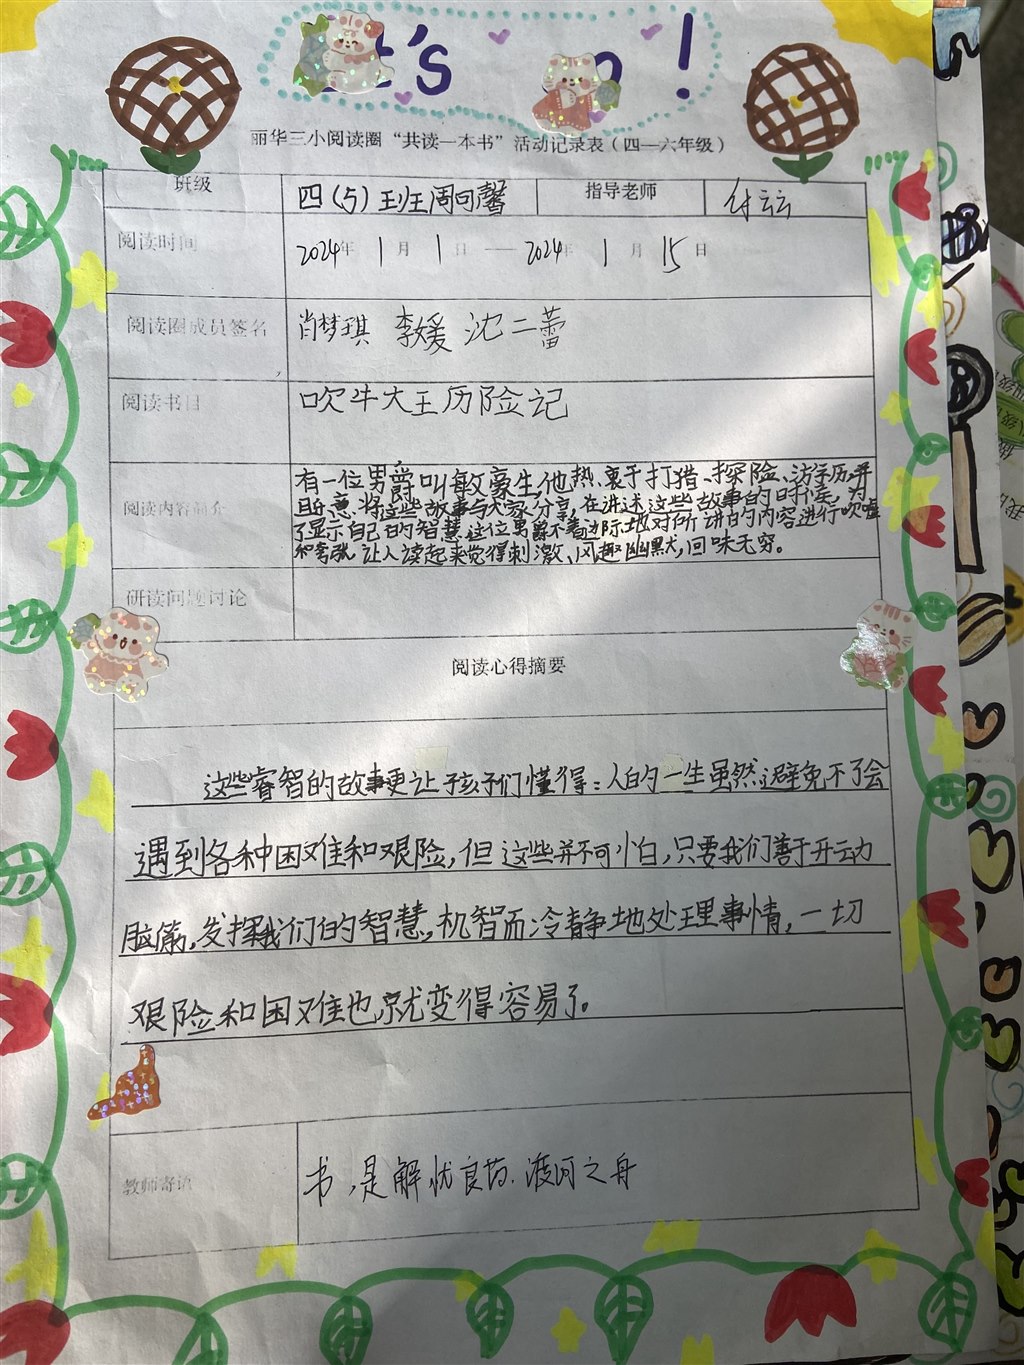 't's o!
丽华三小阅读圈“共读一本书”活动记录表（四—六年级）
班级 四（5）班周可馨 指导老师
阅读时间 2024年1月1日——2024年1月15日
阅读圈成员签名 肖梦琪 李媛 沈二蕾
阅读书目 吹牛大王历险记
有一位男爵叫敏豪生，他热衷于打猎、探险、游学历，并
阅读内容简介 且乐意将这些故事与大家分享，在讲述这些故事的时候，为
了显示自己的智慧这位男爵不着边际地对所讲的内容进行吹嘘
和夸张，让人读起来觉得刺激、风趣幽默，回味无穷。
研读问题讨论
阅读心得摘要
这些睿智的故事更让孩子们懂得：人的一生虽然避免不了会
遇到各种困难和艰险，但这些并不可怕，只要我们善于开动
脑筋，发挥我们的智慧，机智而冷静地处理事情，一切
艰险和困难也就变得容易了。
教师寄语 书，是解忧良药.渡河之舟